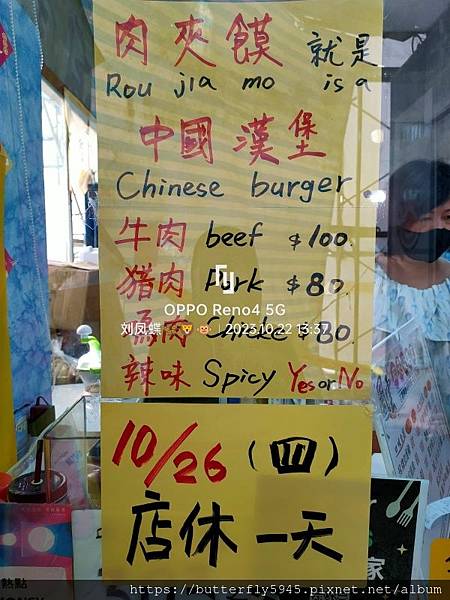 肉夾饃 就是
Rou jia mo is a
中國漢堡
Chinese burger
牛肉 beef $100.
猪肉 Pork $80.
OPPO Reno4 5G
刘凤蝶 | 2023.10.22 13:37
$80.
辣味 Spicy Yes or No
10/26 (四)
店休一天
家
熱點
https://butterfly5945.pixnet.net/album